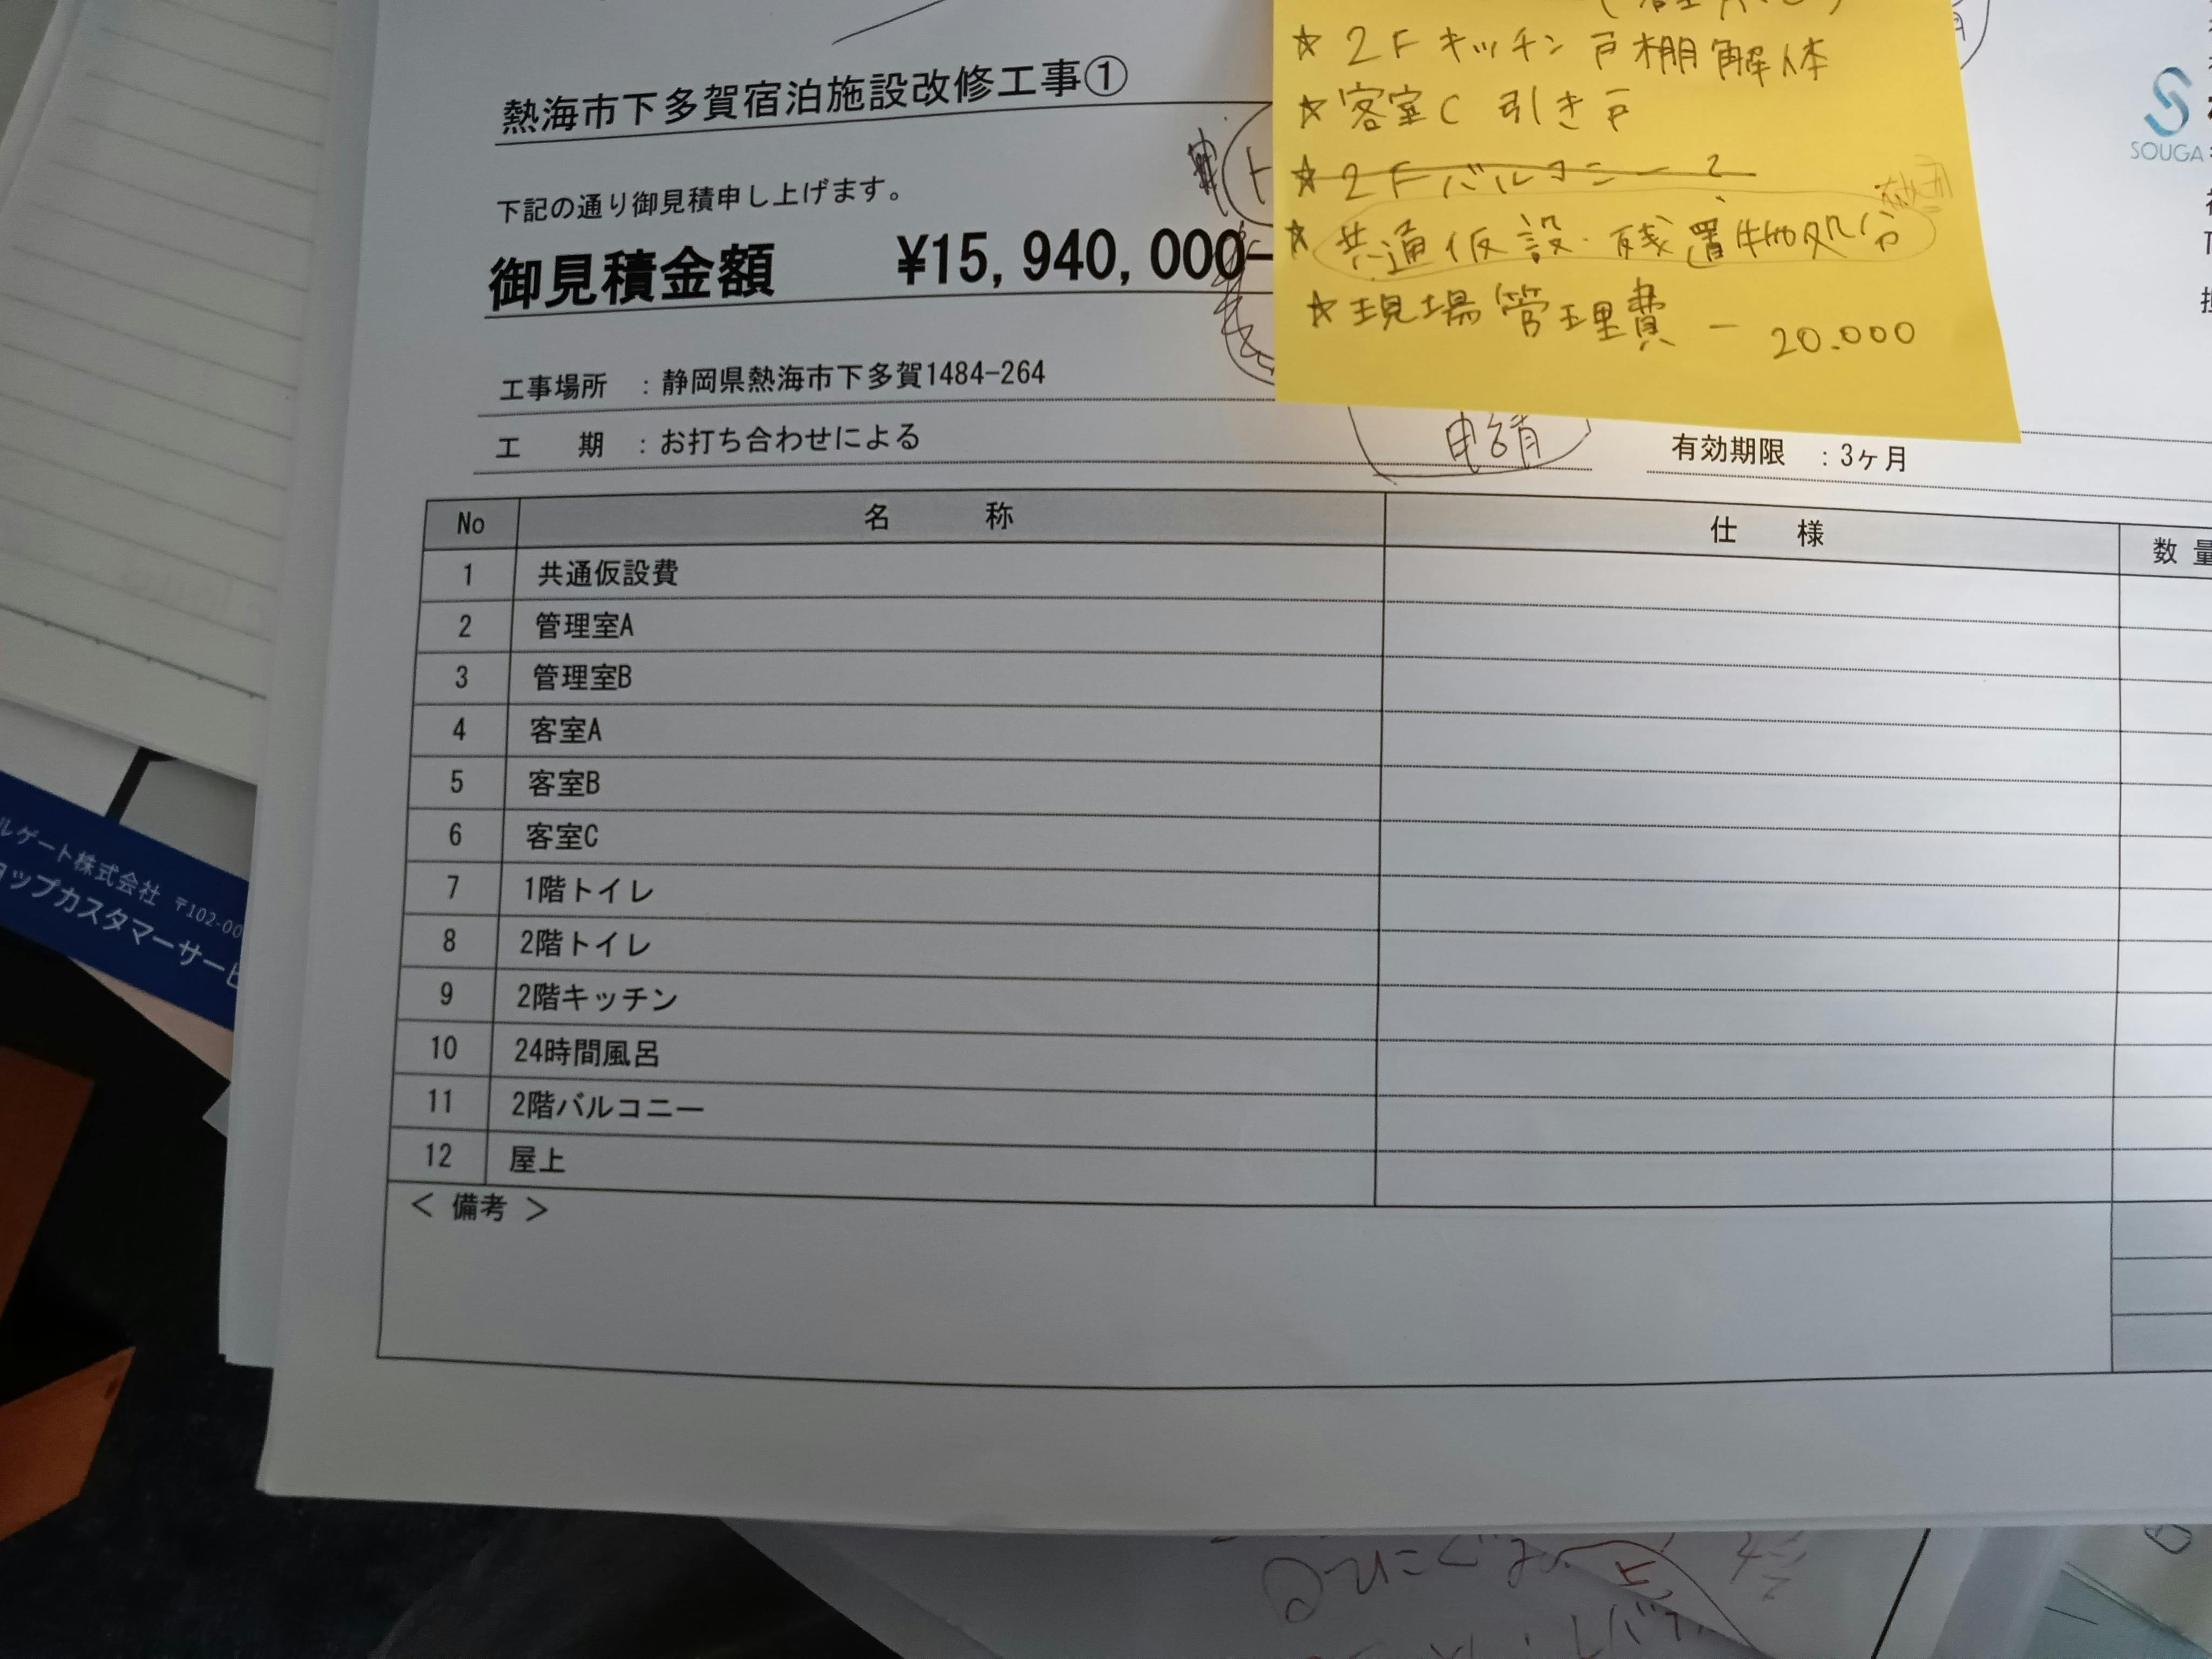 熱海市下多賀宿泊施設改修工事①
下記の通り御見積申し上げます。
御見積金額 ¥15,940,000-
工事場所 ：静岡県熱海市下多賀1484-264
工 期 ：お打ち合わせによる
★ 2Fキッチン戸棚解体
★ 客室C 引き戸
★ 2Fバルコニー?
★ 共通仮設・残置物処分
★ 現場管理費 - 20.000
SOUGA
申請
有効期限 ：3ヶ月
No 名 称 仕 様 数 量
1 共通仮設費
2 管理室A
3 管理室B
4 客室A
5 客室B
6 客室C
7 1階トイレ
8 2階トイレ
9 2階キッチン
10 24時間風呂
11 2階バルコニー
12 屋上
＜ 備考 ＞
ルゲート株式会社 〒102-00
ョップカスタマーサービ